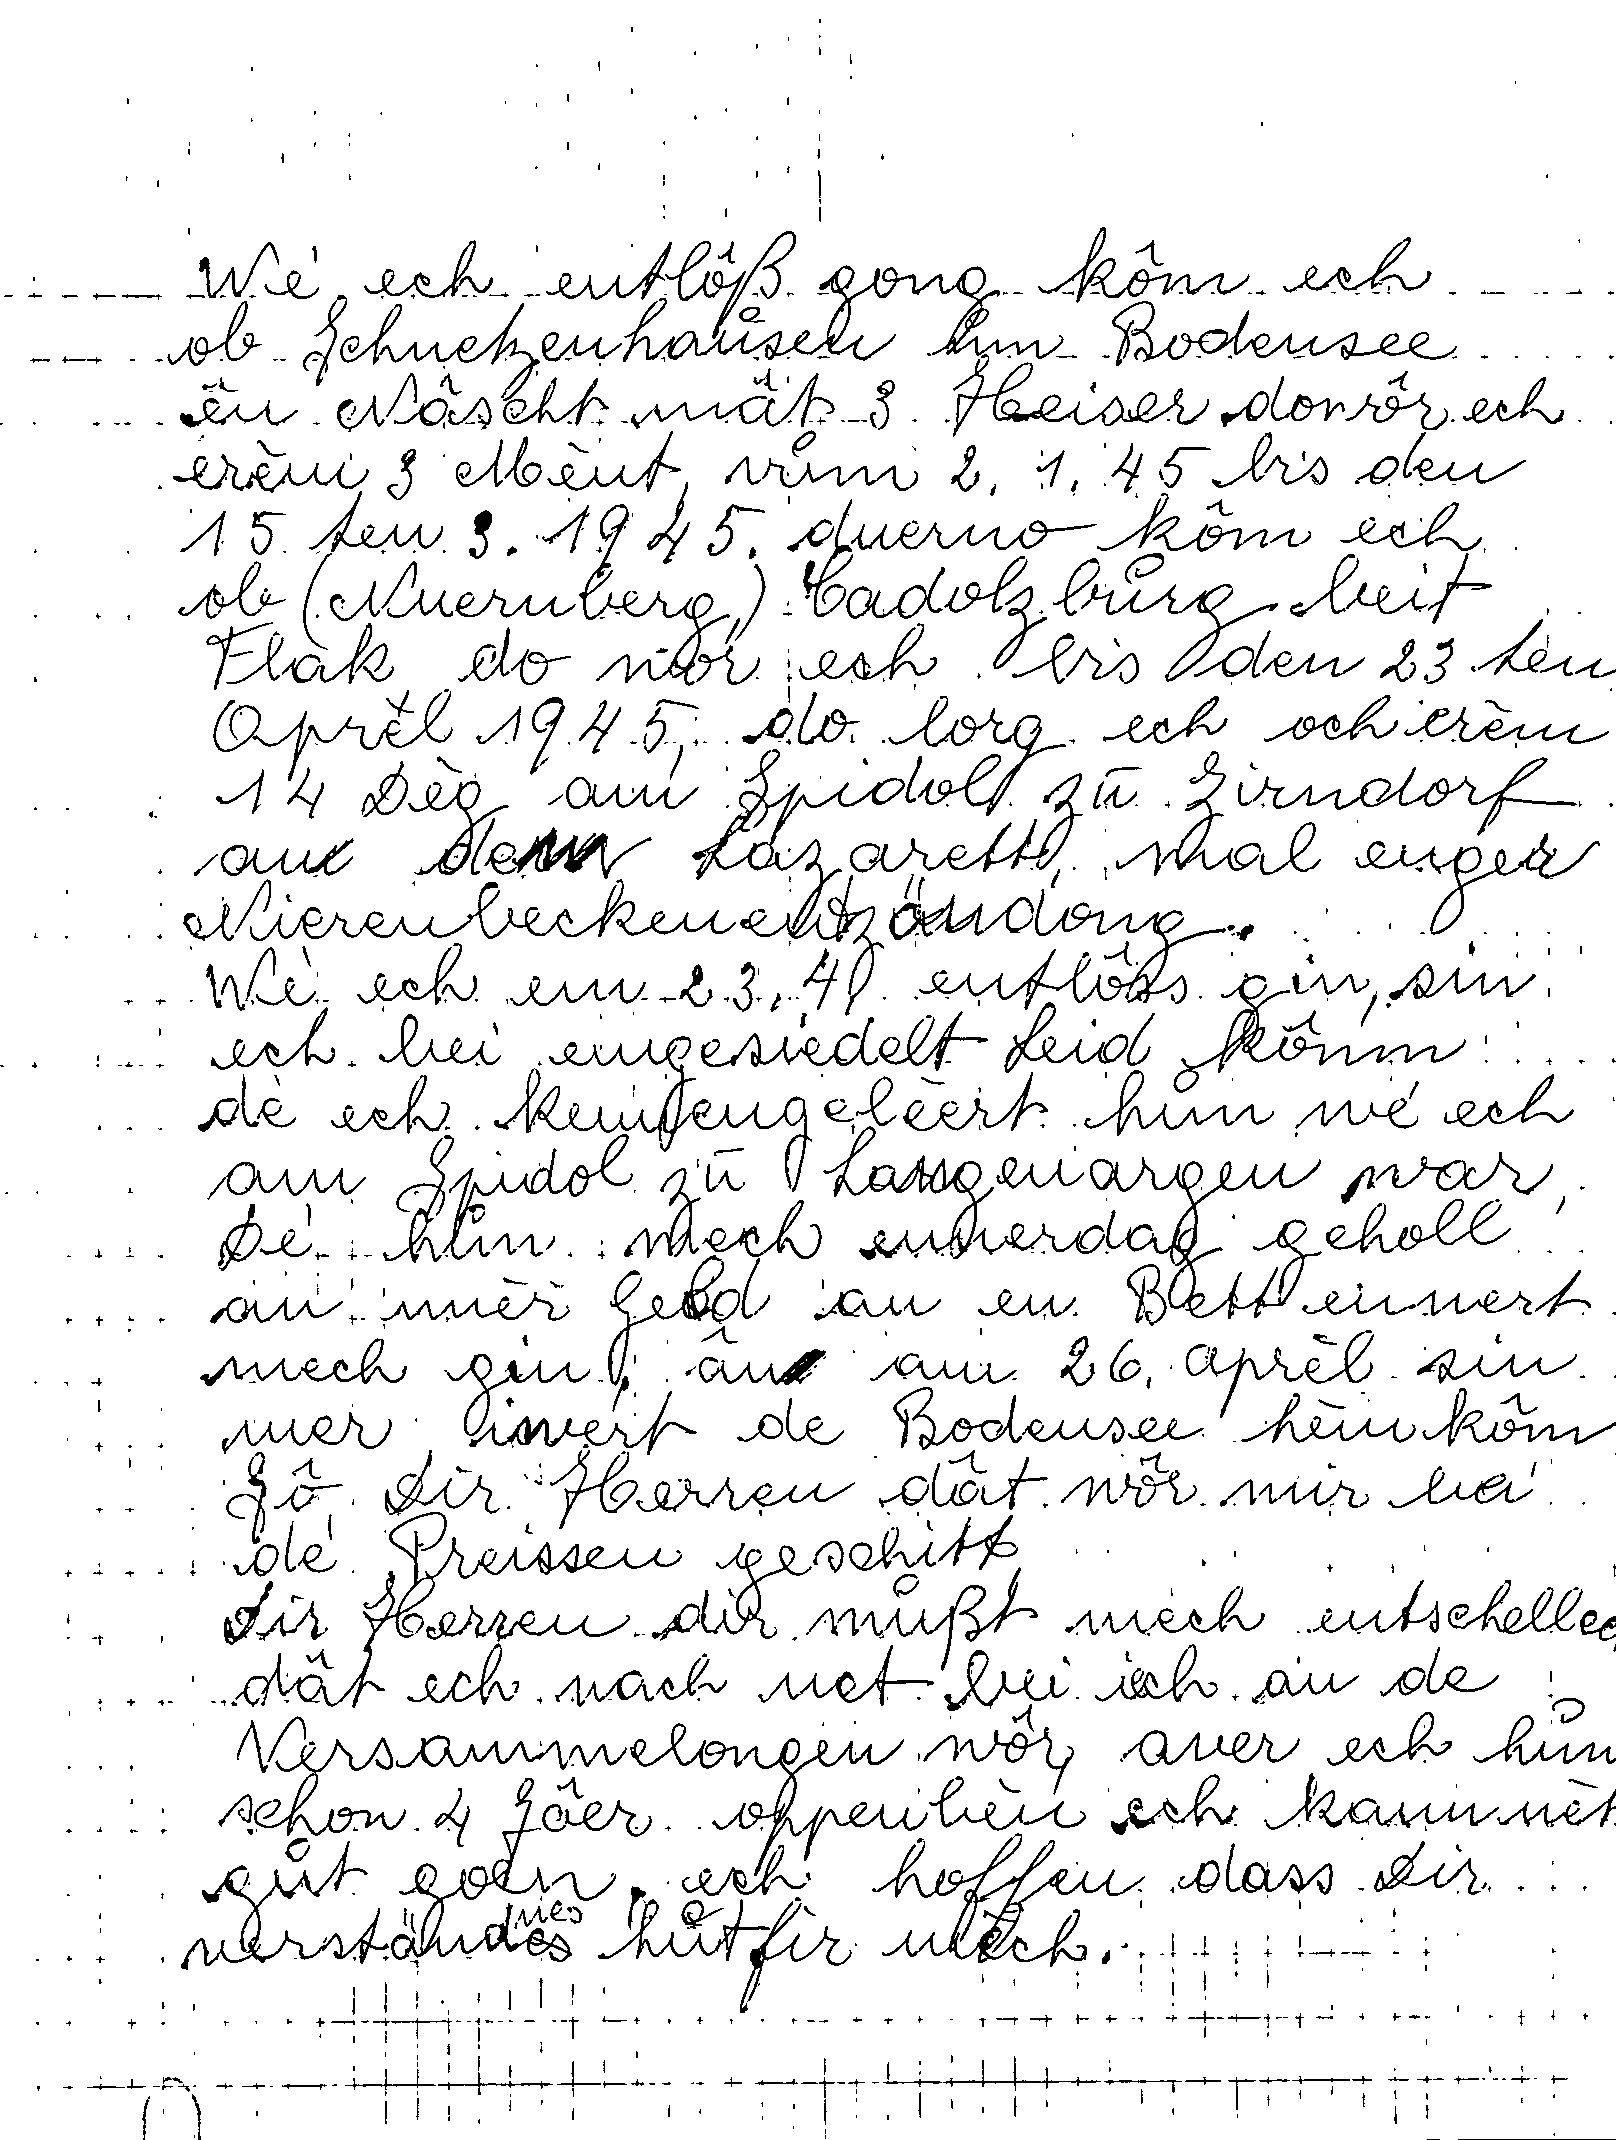 Wé ech entlôß gong kôm ech
ob Schnetzenhaůsen am Bodensee
ën Nâscht mät 3 Heiser do wôr ech
erèm 3 Mènt, vům 2. 1. 45 bis den
15 ten 3. 1945. duerno kôm ech
ob (Nuernberg) Cadolzbůrg beit
Flàk do wor ech bis den 23 ten
Aprèl 1945, do lorg ech och erèm
14 Dèg am Spidol zū Zirndorf
am dem Lazarett, mat enger
Nierenbeckenentzöndong.
Wé ech em 23.4. entlôss gin, sin
ech bei emgesiedelt Leid kômm
dé ech kennengeléert hůn wé ech
am Spidol zū Langenargen war,
Dé hůn mech ennerdag geholl
an mèr Geld an en Bett ennert
mech gin, ân am 26. Aprèl sin
mer iwert de Bodensee hèm kôm
Jô Dir Herren dât wôr mir bei
dé Preissen geschitt
Dir Herren dir můßt mech entschelleg
dât ech nach net bei ich an de
Versammelongen wôr, awer ech hůn
schon 4 Jôer oppen bèn ech kann nèt
gůt goen, ech hoffen dass Dir
verständnies hůt fir mech.